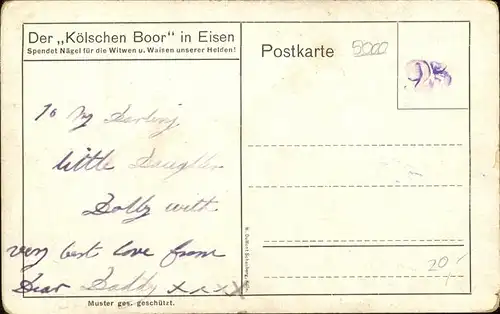 Der „Kölschen Boor" in Eisen
Spendet Nägel für die Witwen u. Waisen unserer Helden!
Postkarte
5000
To My Darling
little Daughter
Dolly with
very best love from
Dear Daddy xxxx
20
Muster ges. geschützt.